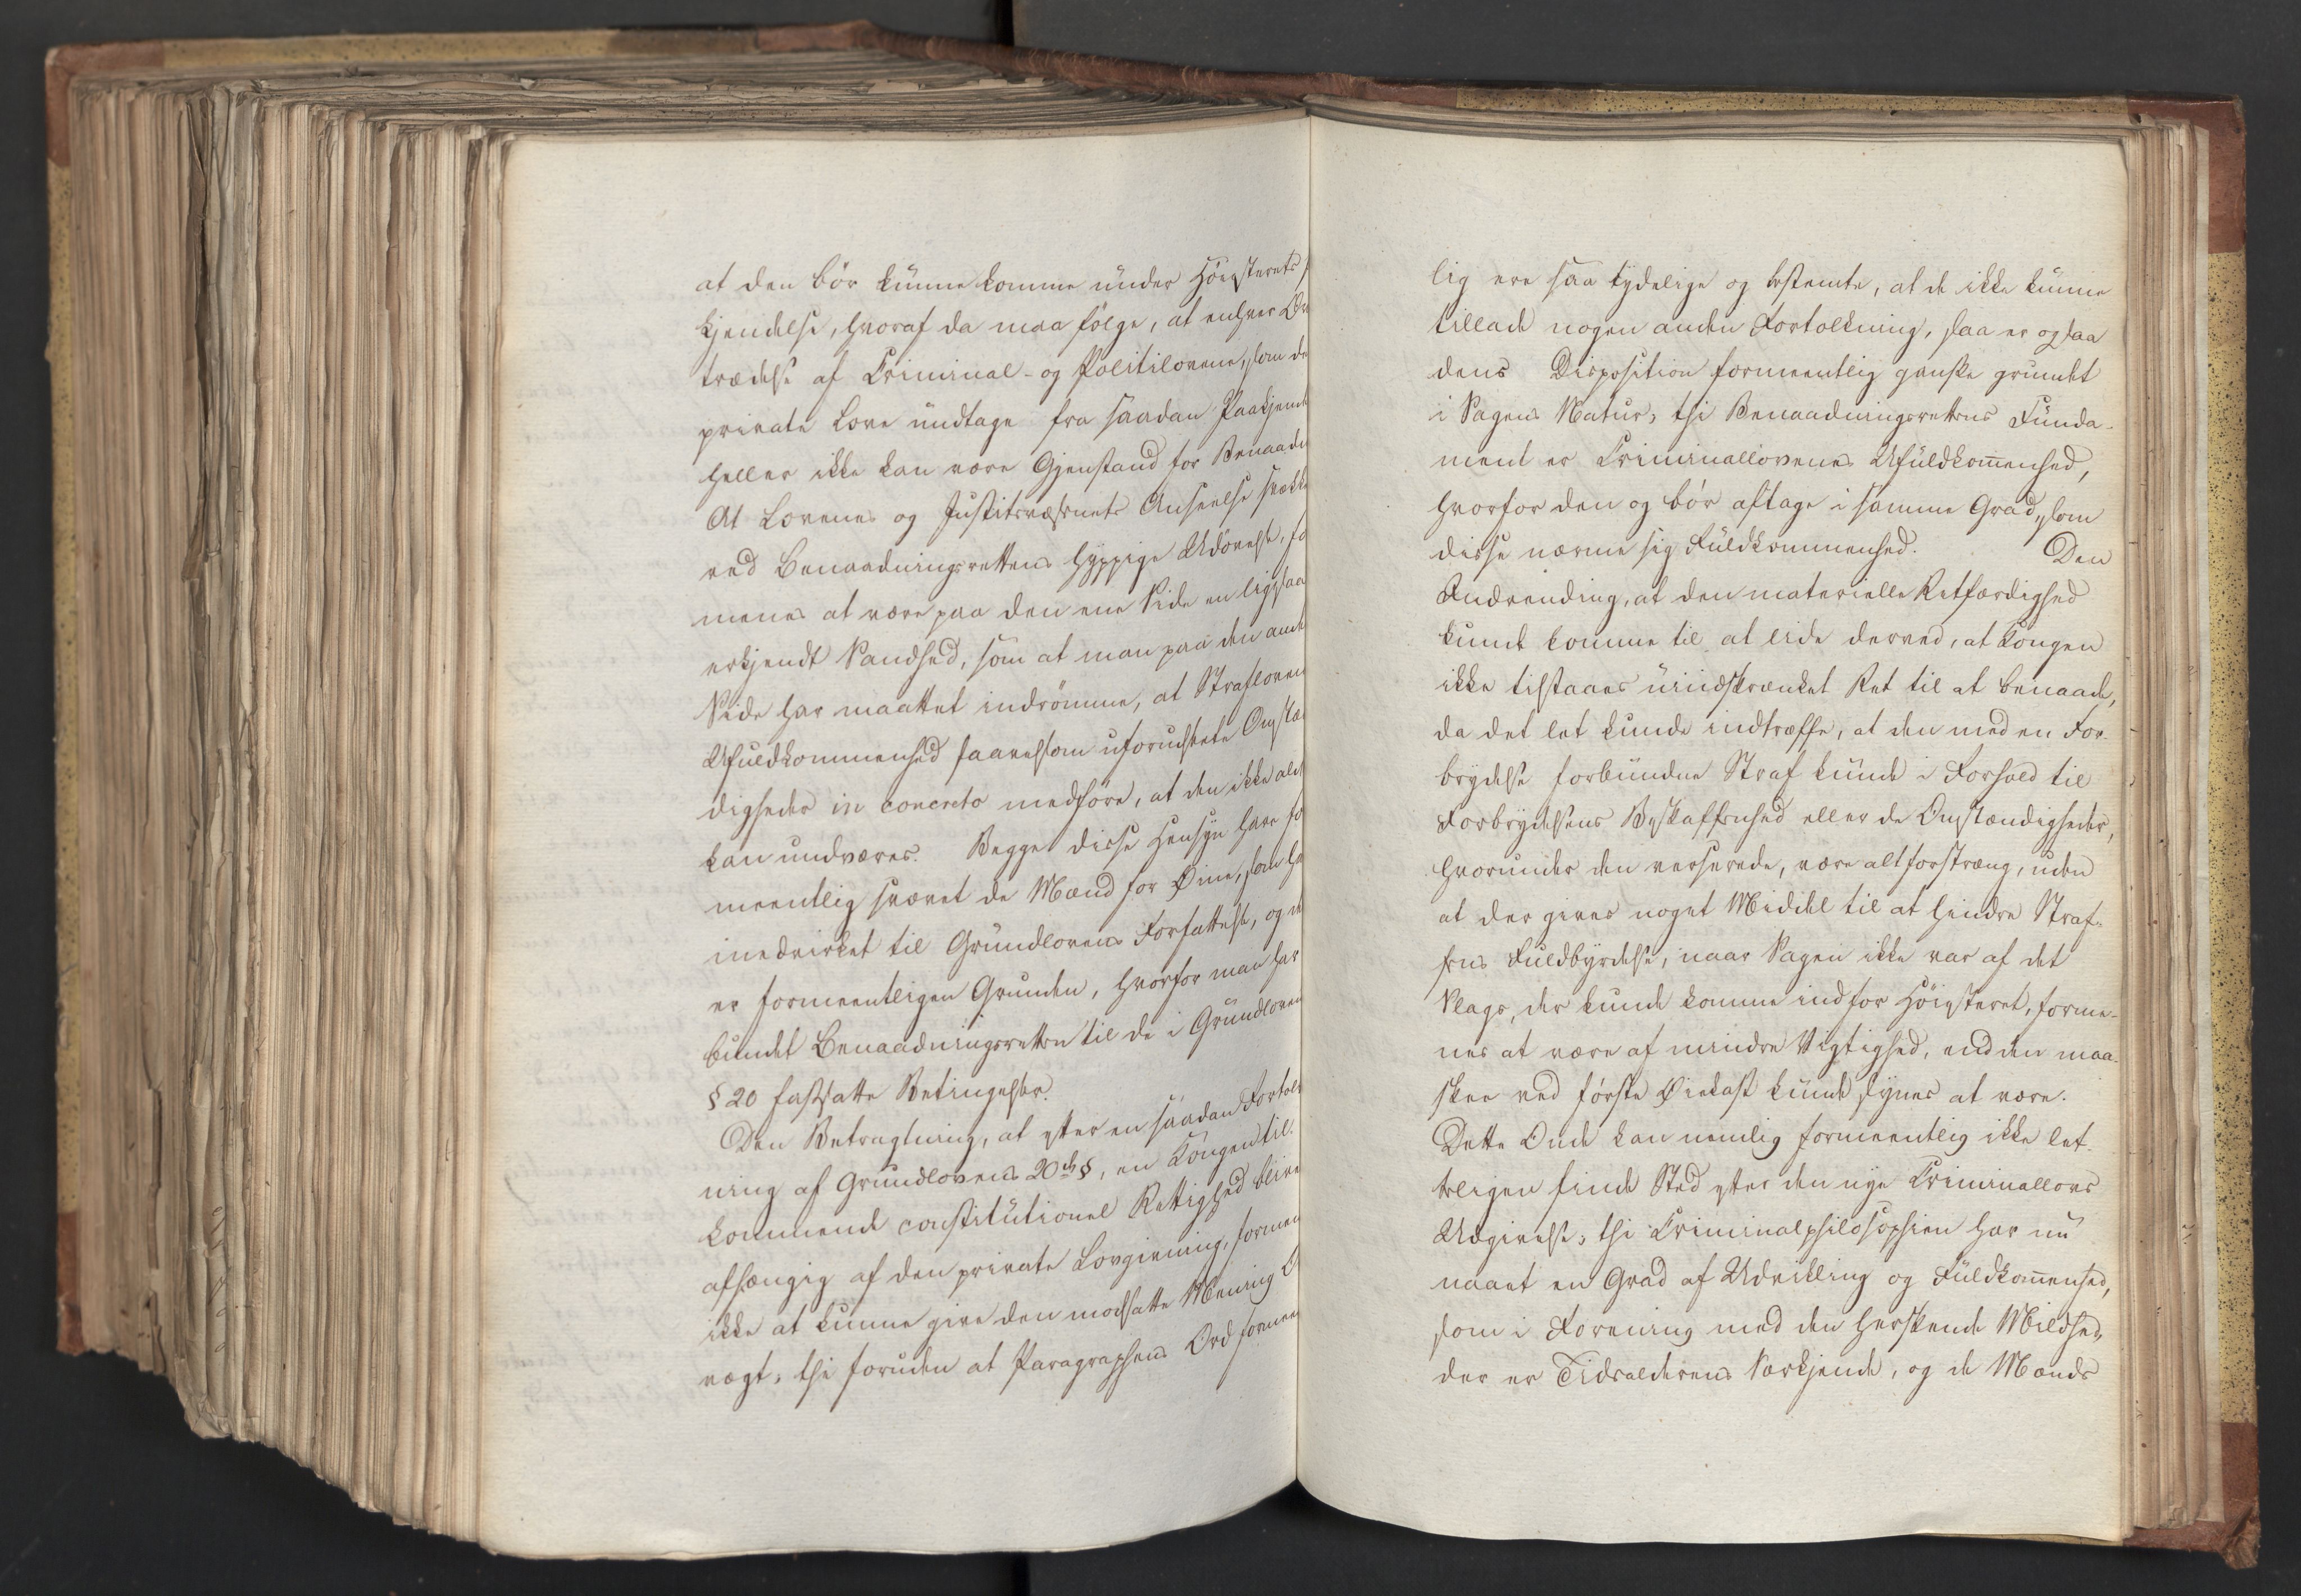 at den bör kunne komme under Höiesterets
Kjendelse, hvoraf da maa fölge, at enhver
trædelse af Criminal- og Politilovene, som de
private Love undtage fra saadan Paakjend
heller ikke kan være Gjenstand for Benaad
At Lovenes og Justitsvæsenets Anseelse svækk
ved Benaadningsrettens hyppige Udövelse, fo
menes at være paa den ene Side en ligesaa
erkjendt Sandhed, som at man paa den and
Side har maattet indrömme, at Straffeloven
Ufuldkommenhed saavelsom uforudseete Omstæn
digheder in concreto medföre, at den ikke alde
kan undværes. Begge disse Hensyn have fo
meentlig svævet de Mænd for Öine, som ha
medvirket til Grundlovens Forfattelse, og de
er formeentligen Grunden, hvorfor man har
bundet Benaadningsretten til de i Grundloven
§ 20 fastsatte Betingelser.
Den Betragtning, at efter en saadan Fortolk
ning af Grundlovens 20de §, en Kongen til-
kommende constitutionel Rettighed blive
afhængig af den private Lovgivning, formen
ikke at kunne give den modsatte Mening
vægt; thi foruden at Paragraphens Ord formeen
lig ere saa tydelige og bestemte, at de ikke kunne
tillade nogen anden Fortolkning, saa er ogsaa
dens Disposition formeentlig ganske grundet
i Sagens Natur; thi Benaadningsrettens Funda-
ment er Criminallovenes Ufuldkom̅enhed,
hvorfor den og bör aftage i samme Grad, som
disse nærme sig Fuldkommenhed. Den
Indvending, at den materielle Retfærdighed
kunde komme til at lide derved, at Kongen
ikke tilstaaes uindskrænket Ret til at benaade,
da det let kunde indtræffe, at den med en For-
brydelse forbundne Straf kunde i Forhold til
Forbrydelsens Beskaffenhed eller de Omstændigheder,
hvorunder den verserede, være altforstræng, uden
at der gives noget Middel til at hindre Straf-
fens Fuldbyrdelse, naar Sagen ikke var af det
Slags, der kunde komme ind for Höiesteret, forme-
nes at være af mindre Vigtighed, end den maa-
skee ved förste Öiekast kunde synes at være.
Dette Onde kan nemlig formeentlig ikke let-
teligen finde Sted efter den nye Criminallovs
Udgivelse; thi Criminalphilosophien har nu
naaet en Grad af Udvikling og Fuldkom̅enhed,
som i Forening med den herskende Mildhed,
der er Tidsalderens Særkjende, og de Mænds